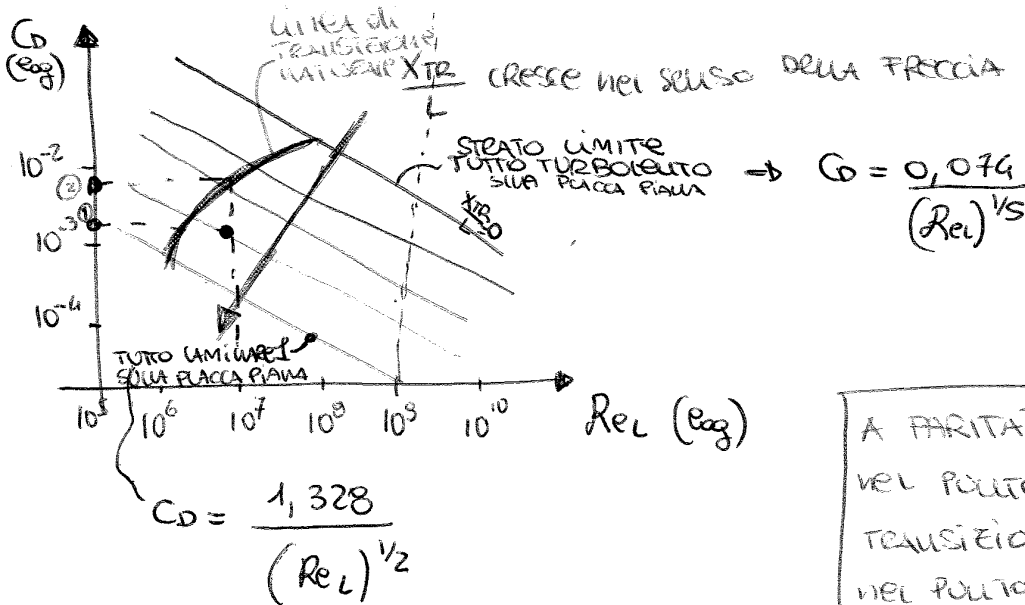 CD
(log)
LINEA di
TRANSIZIONE
NATURALE
XTR
L
CRESCE NEL SENSO DELLA FRECCIA
STRATO LIMITE
TUTTO TURBOLENTO
SULLA PLACCA PIANA
=> CD = 0,074
(ReL)^1/5
XTR
L=0
10^-2
②
①
10^-3
10^-4
TUTTO LAMINARE
SULLA PLACCA PIANA
10^5 10^6 10^7 10^8 10^9 10^10
ReL (log)
CD = 1,328
(ReL)^1/2
A PARITA'
NEL PUNTO
TRANSIZIO
NEL PUNTO